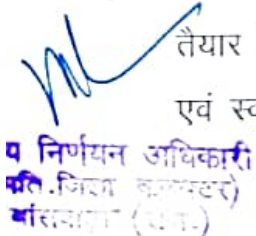 तैयार
एवं स्व
प निर्णयन अधिकारी
पति.जिला कलक्टर)
बांसवाड़ा (राज.)